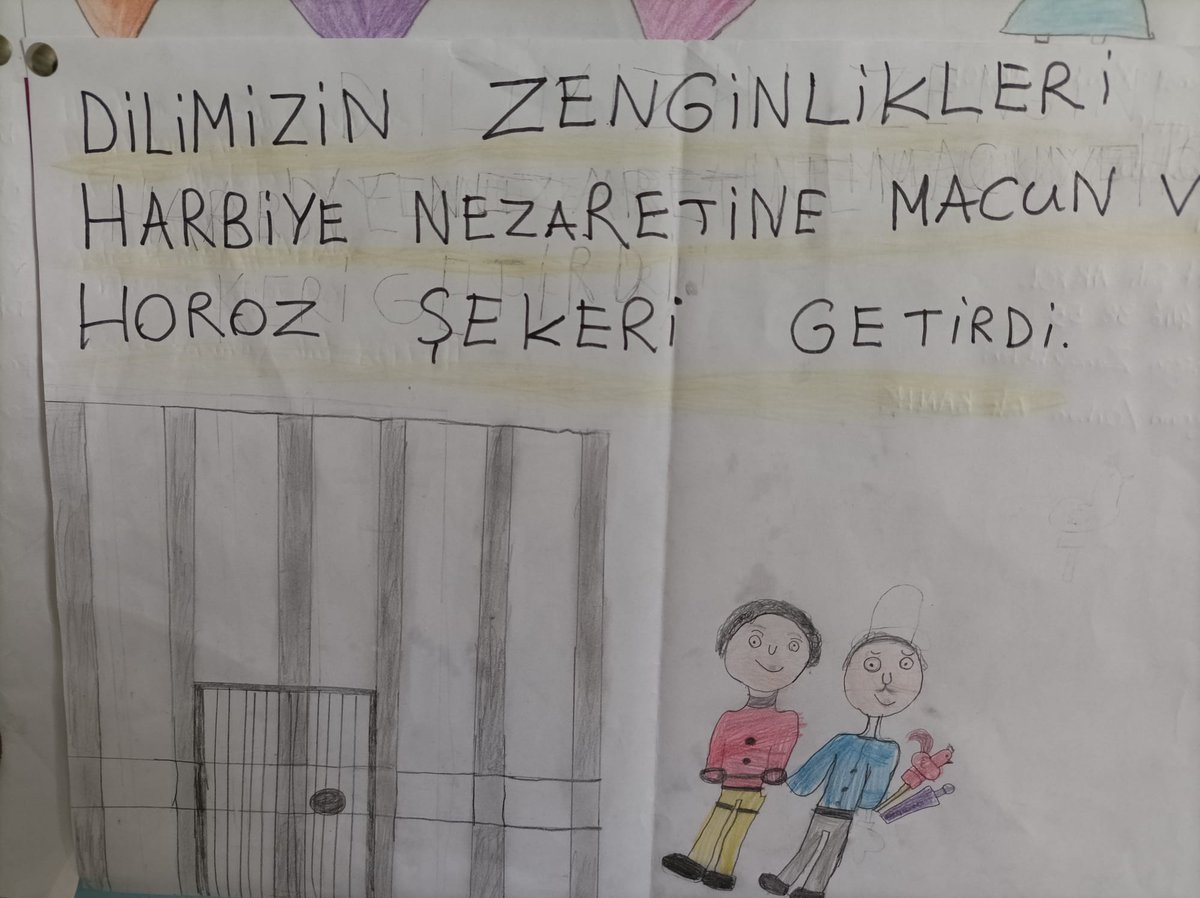 DİLİMİZİN ZENGİNLİKLERİ
HARBİYE NEZARETİNE MACUN V
HOROZ ŞEKERİ GETİRDİ.